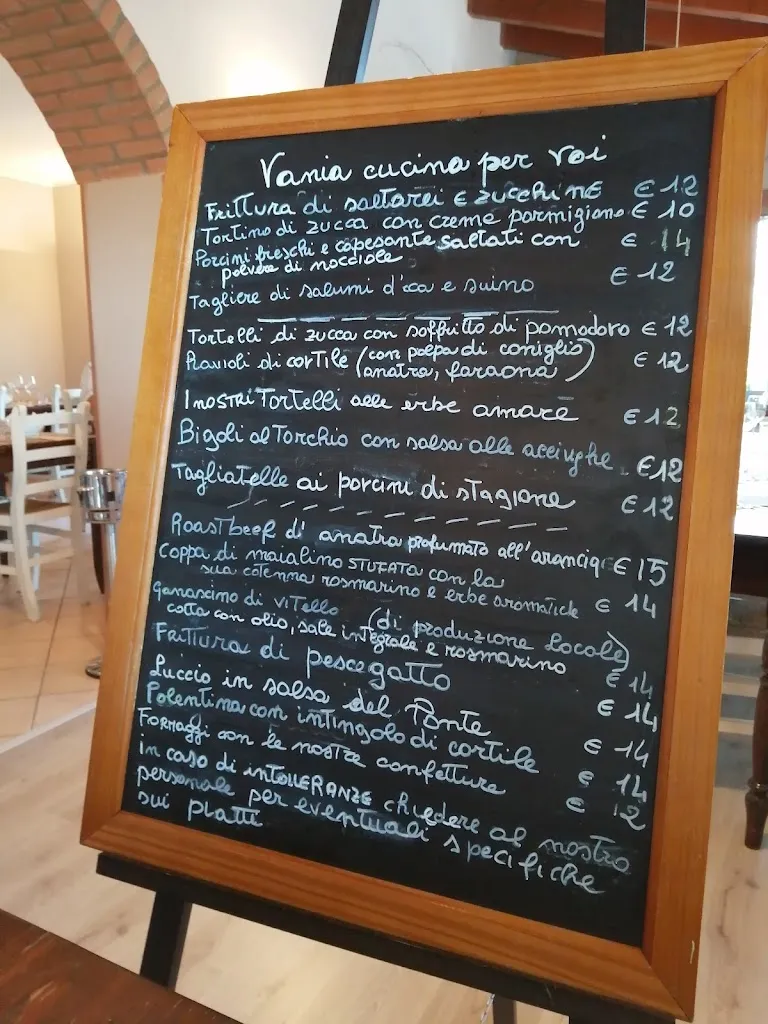 Vania cucina per voi
Frittura di saltarei E zucchine € 12
Tortino di zucca con creme parmigiano € 10
Porcini freschi e capesante saltati con € 14
polvere di nocciole
Tagliere di salumi d'oca e suino € 12
Tortelli di zucca con soffritto di pomodoro € 12
Ravioli di cortile (con polpa di coniglio € 12
anatra, faraona)
I nostri Tortelli alle erbe amare € 12
Bigoli al Torchio con salsa alle acciughe € 12
Tagliatelle ai porcini di stagione € 12
Roastbeef d'anatra profumato all'arancia € 15
Coppa di maialino STUFATA con la
sua cotenna rosmarino e erbe aromatiche € 14
Guanciino di vitello (di produzione locale)
cotta con olio, sale integrale e rosmarino € 14
Frittura di pescegatto € 14
Luccio in salsa del Ponte € 14
Polentina con intingolo di cortile € 14
Formaggi con le nostre confetture € 12
In caso di intolleranze chiedere al nostro
personale per eventuali specifiche
sui piatti